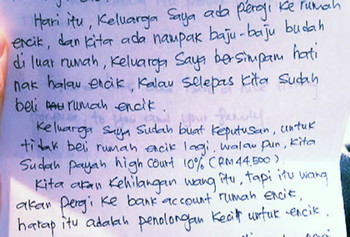 Hari itu, Keluarga Saya ada pergi ke rumah
encik, dan kita ada nampak baju-baju budah
di luar rumah, Keluarga Saya bersimpam hati
nak halau encik, Kalau selepas kita Sudah
beli rumah encik.
Keluarga Saya Sudah buat Keputusan, untuk
tidak beli rumah encik lagi, walau pun, kita
Sudah payah high Court 10% (RM44500).
Kita akan Kehilangan wang itu, tapi itu wang
akan Pergi Ke bank account rumah encik,
harap itu adalah penolongan Kecil untuk encik.